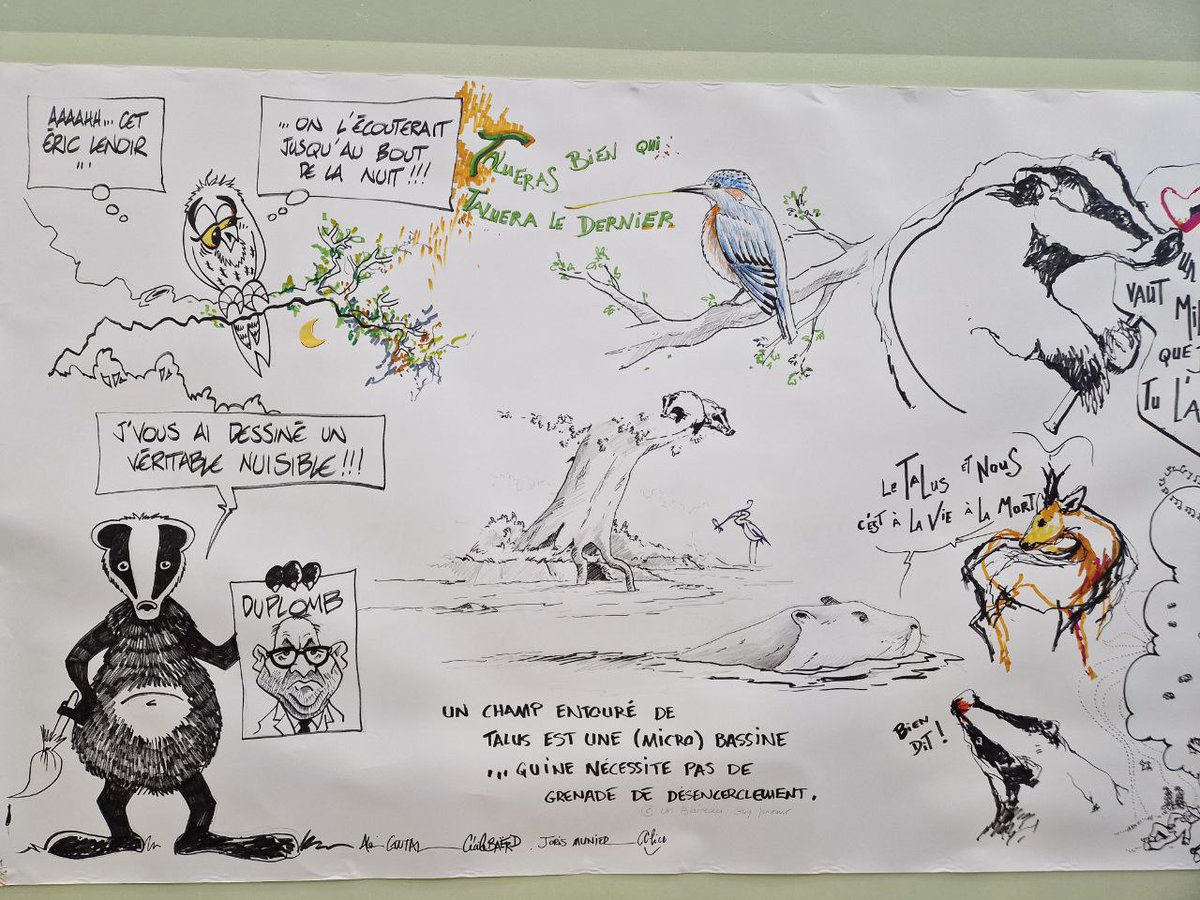 AAAAHH... CET
ÉRIC LENOIR
...
... ON L'ÉCOUTERAIT
JUSQU'AU BOUT
DE LA NUIT!!!
TALUERAS BIEN QUI
TALUERA LE DERNIER
VAUT
QUE
TU L'A
J'VOUS AI DESSINÉ UN
VÉRITABLE NUISIBLE!!!
DUPLOMB
LE TALUS ET NOUS
C'EST À LA VIE À LA MORT
BIEN
DIT!
UN CHAMP ENTOURÉ DE
TALUS EST UNE (MICRO) BASSINE
... QUI NE NÉCESSITE PAS DE
GRENADE DE DÉSENCERCLEMENT.
© UN Blaireau
GOUTAL
BAËRD. JORIS MUNIER